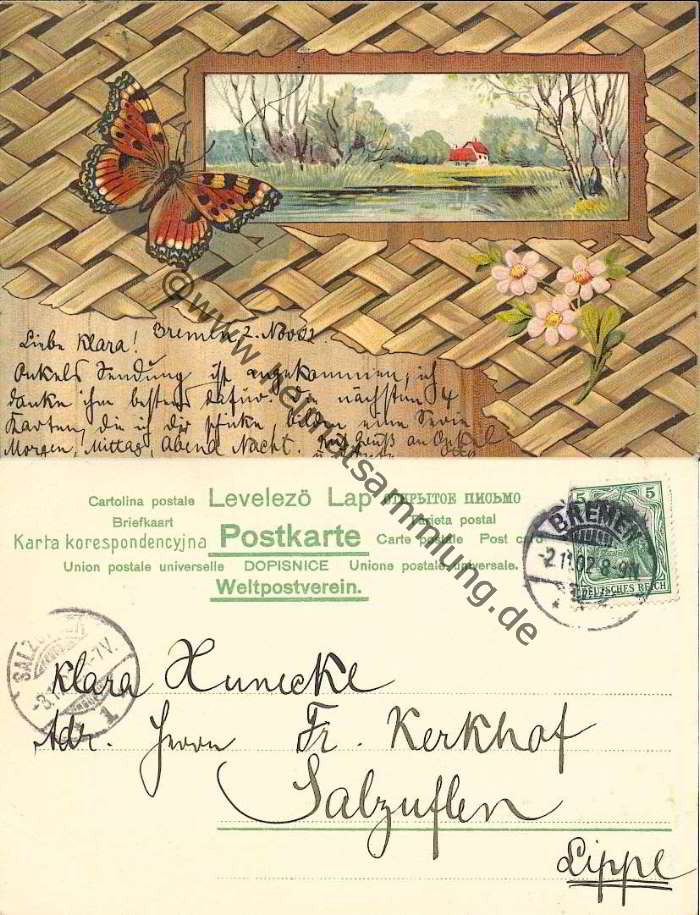 Liebe Klara! Bremen 2. Nov 02.
Onkels Sendung ist angekommen, ich
danke ihm bestens dafür. Die nächsten 4
Karten, die ich dir schicke, bilden eine Serie
Morgen, Mittag, Abend Nacht. Mit Gruß an Onkel
© www.heimatsammlung.de
Cartolina postale Levelezö Lap ОТКРЫТОЕ ПИСЬМО
Briefkaart Postkarte Tarjeta postal
Karta korespondencyjna Carte postale Post card
Union postale universelle DOPISNICE Unione postale universale.
Weltpostverein.
5 5
DEUTSCHES REICH
BREMEN
-2.11.02.8-9N
SALZUFLEN
1
Klara Hunecke
Adr. Herrn Fr. Kerkhof
Salzuflen
Lippe